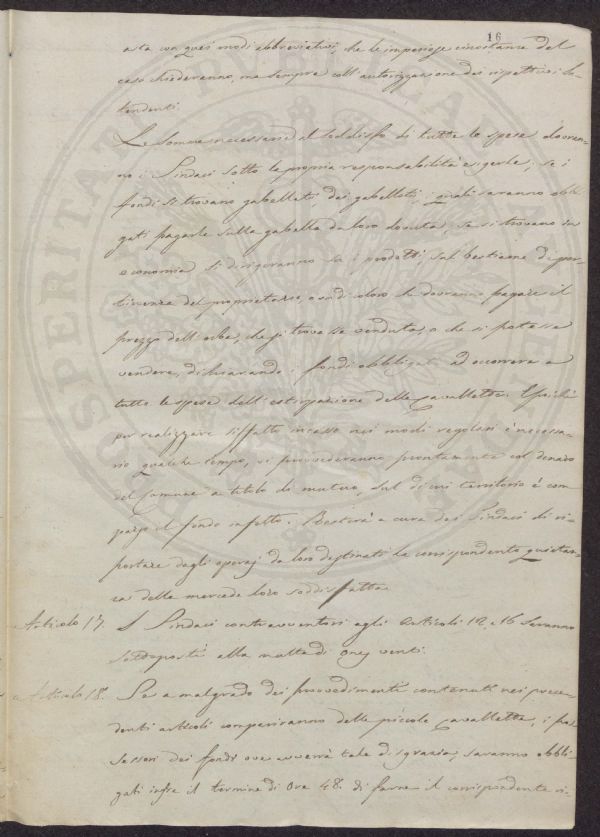 16
asta con quei modi abbreviativi, che le imperiose circostanze del
caso chiederanno, ma sempre coll'autorizzazione dei rispettivi In-
tendenti.
Le somme necessarie al soddisfo di tutte le spese dovran-
no i Sindaci sotto la propria responsabilità esigerle, se i
fondi si trovano gabellati, dai gabelloti, i quali saranno obbli-
gati pagarle sulla gabella da loro dovuta; se si trovano in
economia si dirigeranno su i prodotti, sul bestiame di per-
tinenza del proprietario, o su di coloro che dovranno pagare il
prezzo dell'erbe, che si trovasse venduta, o che si potesse
vendere, dichiarando i fondi obbligati ad occorrere a
tutte le spese dell'estirpazione delle Cavallette. E poichè
per realizzare siffatto incasso nei modi regolari è necessa-
rio qualche tempo, vi provvederanno prontamente col denaro
del Comune a titolo di mutuo, sul di cui territorio è com-
parso il fondo infetto. Resterà a cura dei Sindaci di ri-
portare dagli operaj da loro destinati la corrispondente quietan-
za delle mercede loro soddisfatta.
Articolo 17. I Sindaci contravventori agli Articoli 12, e 16 saranno
sottoposti alla multa di onze venti.
Articolo 18. Se a malgrado dei provvedimenti contenuti nei prece-
denti articoli compariranno delle piccole Cavallette, i pos-
sessori dei fondi ove avverrà tale disgrazia, saranno obbli-
gati infra il termine di Ore 48. di farne il corrispondente ri-